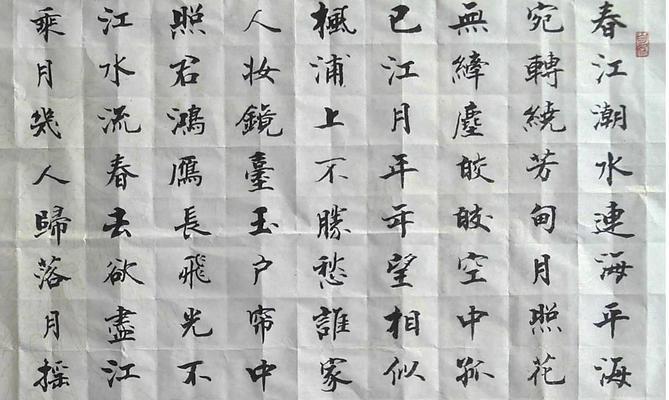 春江潮水連海平海
宛轉繞芳甸月照花
無縴塵皎皎空中孤
已江月年年望相似
楓浦上不勝愁誰家
人妝鏡臺玉户帘中
照君鴻雁長飛光不
江水流春去欲盡江
乘月幾人歸落月摇